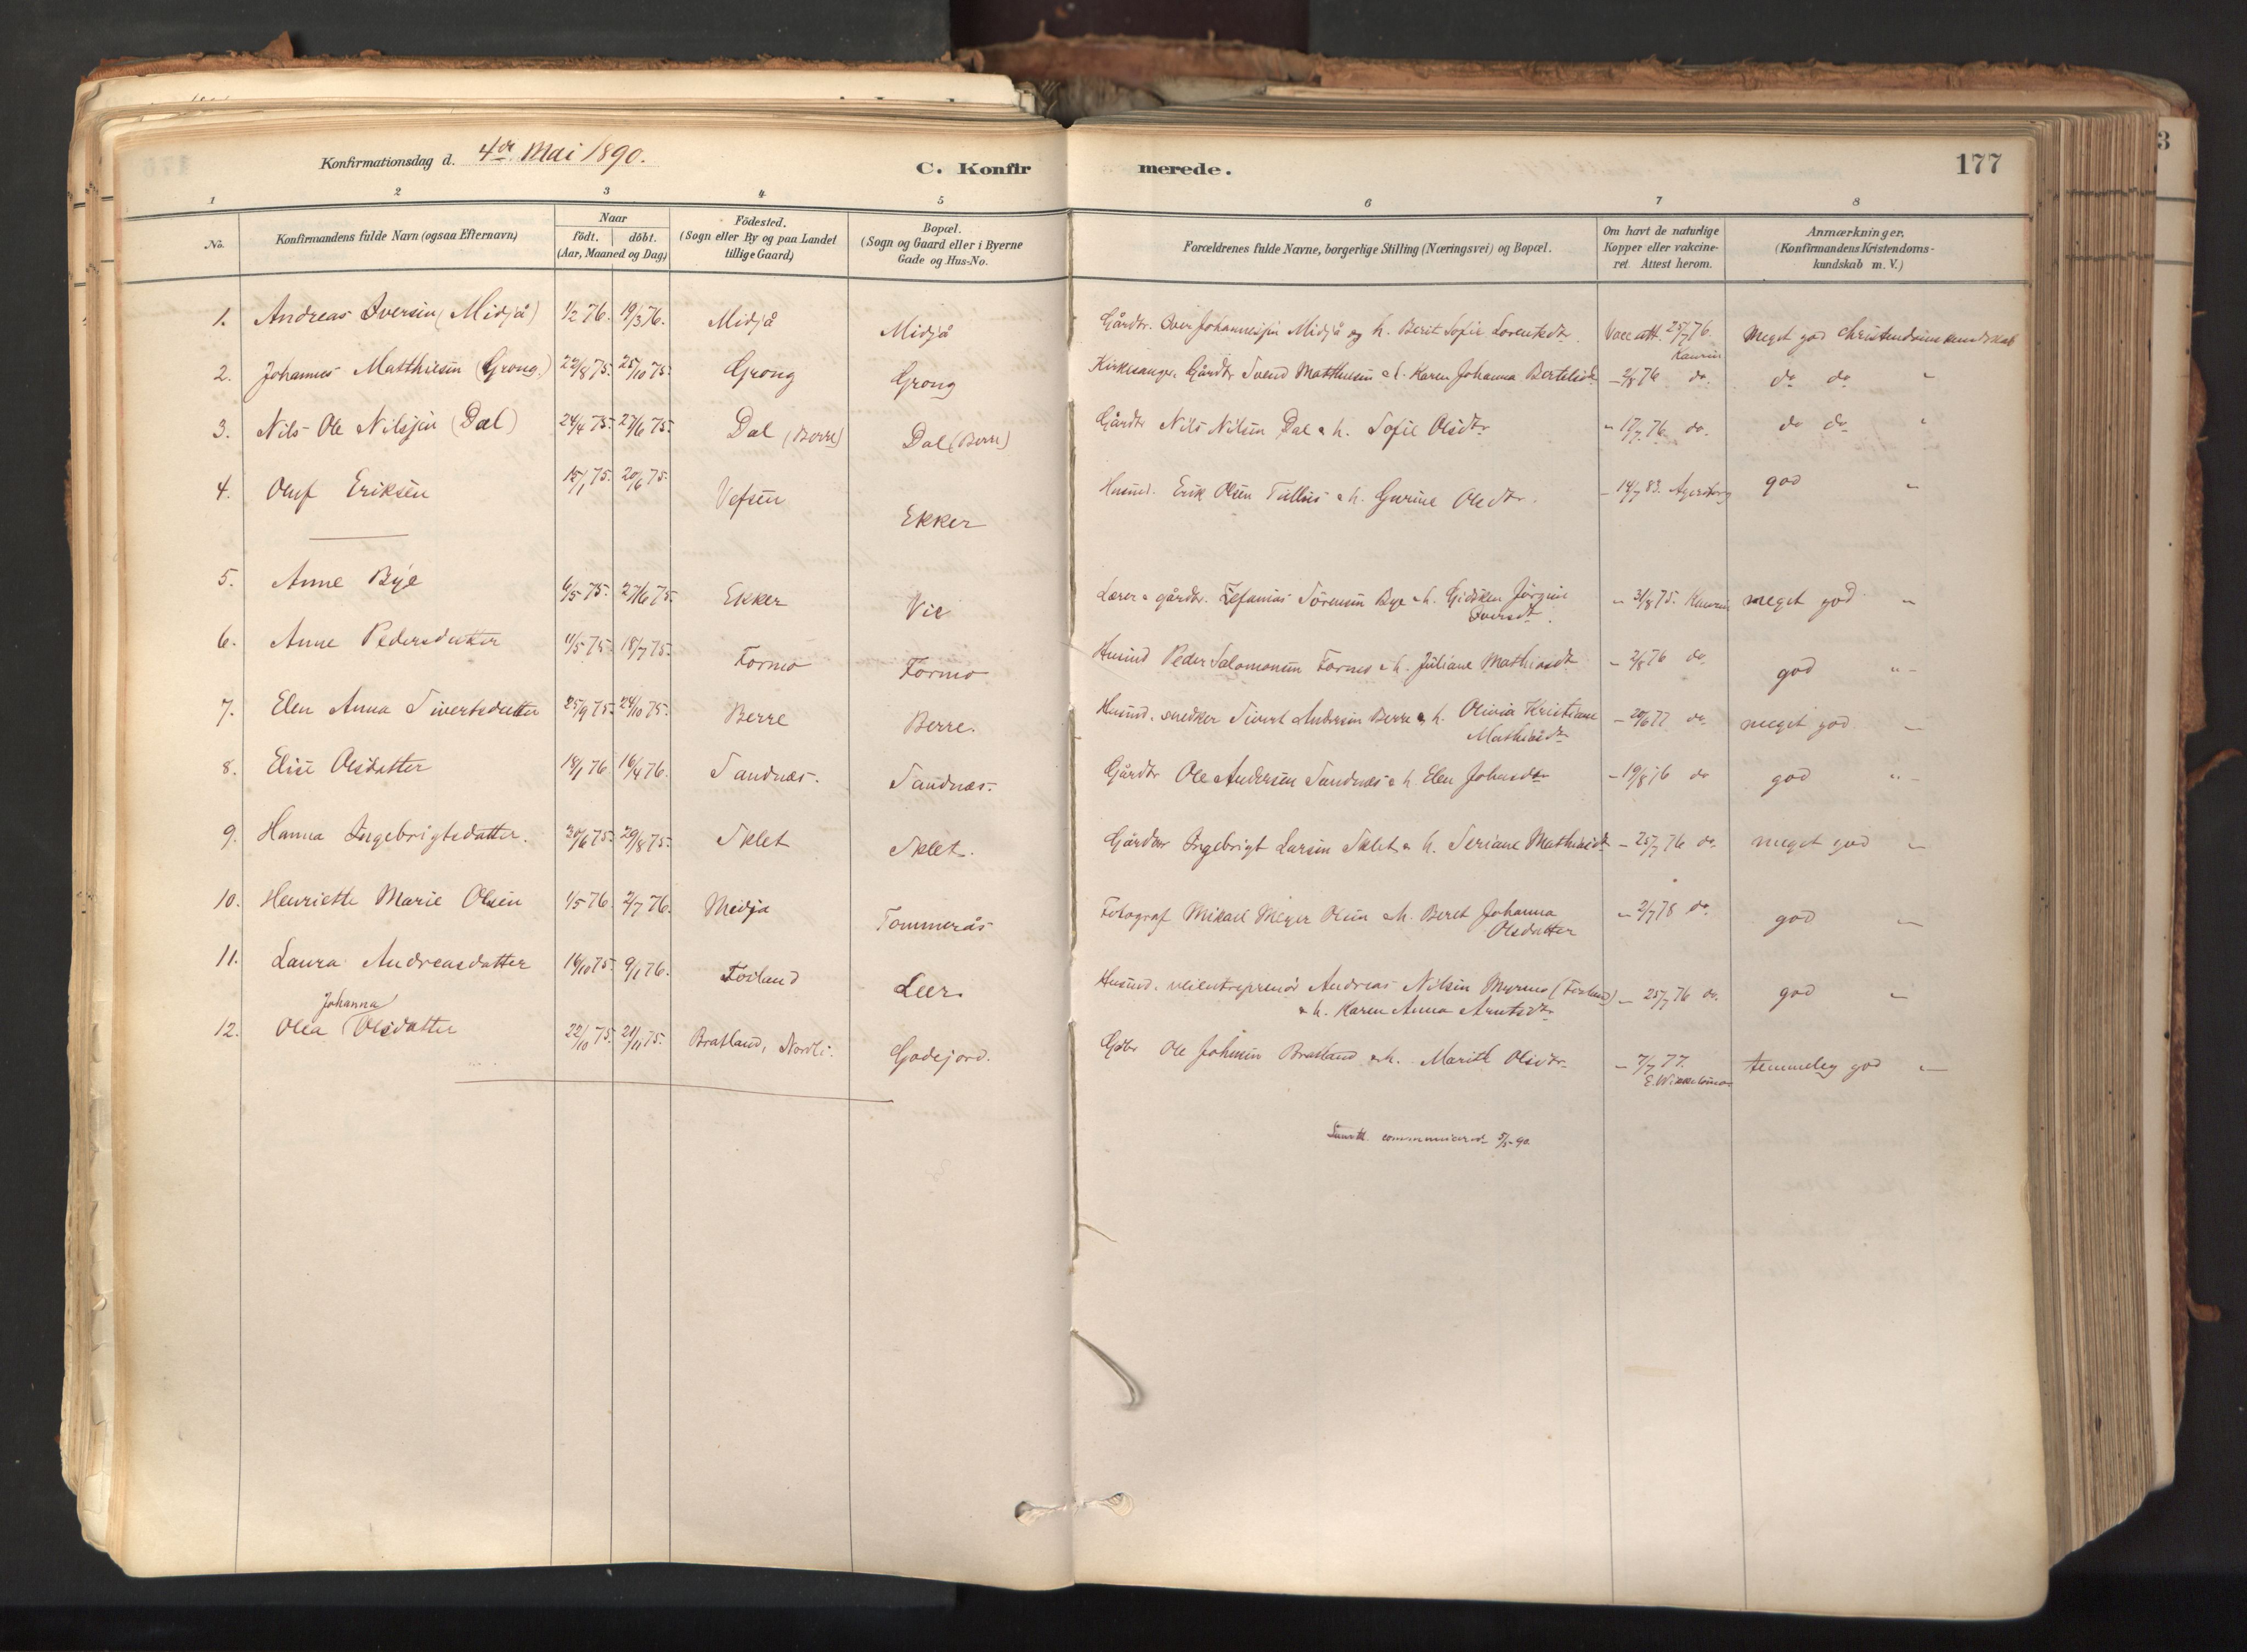 Konfirmationsdag d. 4de Mai 1890.
C. Konfir merede. 177
1 2 3 4 5 6 7 8
No. Konfirmandens fulde Navn (ogsaa Efternavn) Naar födt. döbt. (Aar, Maaned og Dag) Födested. (Sogn eller By og paa Landet tillige Gaard) Bopæl. (Sogn og Gaard eller i Byerne Gade og Hus-No. Forældrenes fulde Navne, borgerlige Stilling (Næringsvei) og Bopæl. Om havt de naturlige Kopper eller vakcineret. Attest herom. Anmærkninger. (Konfirmandens Kristendomskundskab m. V.)
1. Andreas Iversen (Midjå) 1/2 76. 19/3 76. Midjå Midjå Gårdbr. Iver Johannessen Midjå og h. Berit Sofie Lorentsdtr. Vacc att. 25/7 76. Meget god Christendomskundskab
Kaurin
2. Johannes Matthiesen (Grong.) 22/8 75. 25/10 75. Grong Grong Kirkesanger, Gårdbr Svend Matthiesen & h. Karen Johanna Bertelsdtr. - 2/8 76 do. do do "
3. Nils Ole Nilssen (Dal) 24/4 75. 27/6 75. Dal (Berre) Dal (Berre) Gårdbr Nils Nilsen Dal & h. Sofie Olsdtr - 17/7 76 do. do do "
4. Oluf Eriksen 15/1 75. 20/6 75. Vefsen Ekker Husmd. Erik Olsen Tullus & h. Gurine Olsdtr. - 14/7 83. god "
5. Anne Bye 6/5 75. 27/6 75. Ekker Vie Lærer & gårdbr. Zefanias Sörensen Bye & h. Gidsken Jörgine - 31/8 75. Kaurin meget god "
Iversdt.
6. Anne Pedersdatter 11/5 75. 18/7 75. Formo Formo Husmd Peder Salomonsen Formo & h. Juliane Mathiasdtr - 2/8 76 do. god "
7. Elen Anna Sivertsdatter 25/9 75. 24/10 75. Berre Berre. Husmd. snedker Sivert Andersen Berre & h. Olivia Kristiane - 20/6 77 do. meget god "
Mathiasdtr
8. Elise Olsdatter 18/1 76 16/4 76. Sandnæs. Sandnæs. Gårdbr Ole Andersen Sandnæs & h. Elen Johnsdtr - 19/8 76 do god "
9. Hanna Ingebrigtsdatter. 30/6 75. 29/8 75. Sklet Sklet. Gårdbr Ingebrigt Larsen Sklet & h. Seriane Mathiasdtr - 25/7 76 do. meget god "
10. Henriette Marie Olsen 1/5 76. 2/7 76. Medja Tommerås Fotograf Mikael Meyer Olsen & h. Beret Johanna - 2/7 78 do. god "
Olsdatter
11. Laura Andreasdatter 16/10 75. 9/1 76. Fosland Leer. Husmd. veientreprenör Andreas Nilsen Myrmo (Fosland) - 25/7 76 do. god "
& h. Karen Anna Arntsdtr
Johanna
12. Olea Olsdatter 22/10 75. 21/11 75. Bratland, Nordli. Godejord. Gdbr Ole Johnsen Bratland & h. Marith Olsdtr - 7/7 77. temmelig god "
Samtl. communicerede 5/5 90.